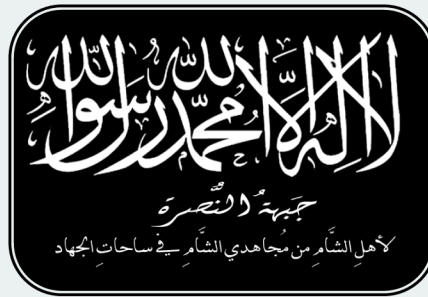 لا إله إلا الله محمد رسول الله
جبهة النُّصرة
لأهلِ الشَّامِ من مُجاهدي الشَّامِ في ساحاتِ الجهاد